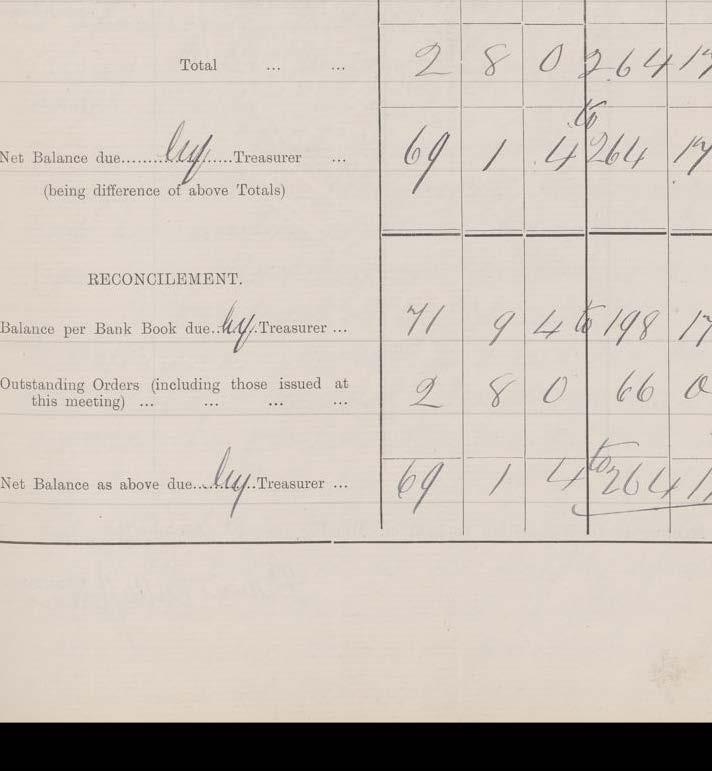 Total ... ... 2 8 0 264 17
to
Net Balance due........by......Treasurer ... 69 1 4 264 17
(being difference of above Totals)
RECONCILEMENT.
Balance per Bank Book due..by..Treasurer ... 71 9 4 to 198 17
Outstanding Orders (including those issued at
this meeting) ... ... ... ... 2 8 0 66 0
Net Balance as above due....by..Treasurer ... 69 1 4 to 264 17